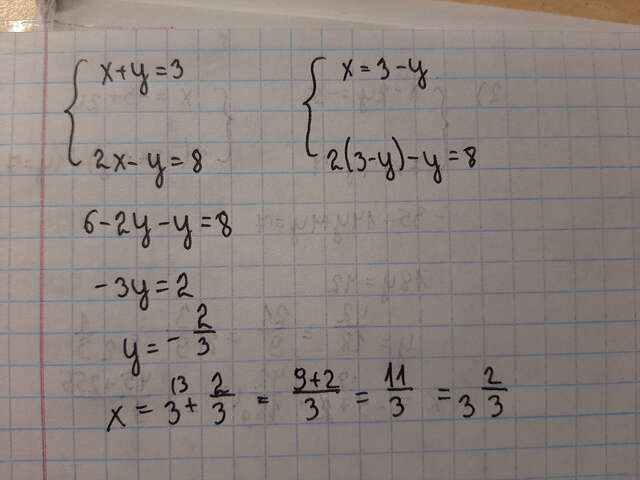 x+y=3
2x-y=8
x=3-y
2(3-y)-y=8
6-2y-y=8
-3y=2
y=-2/3
x=3+2/3=9+2/3=11/3=3 2/3